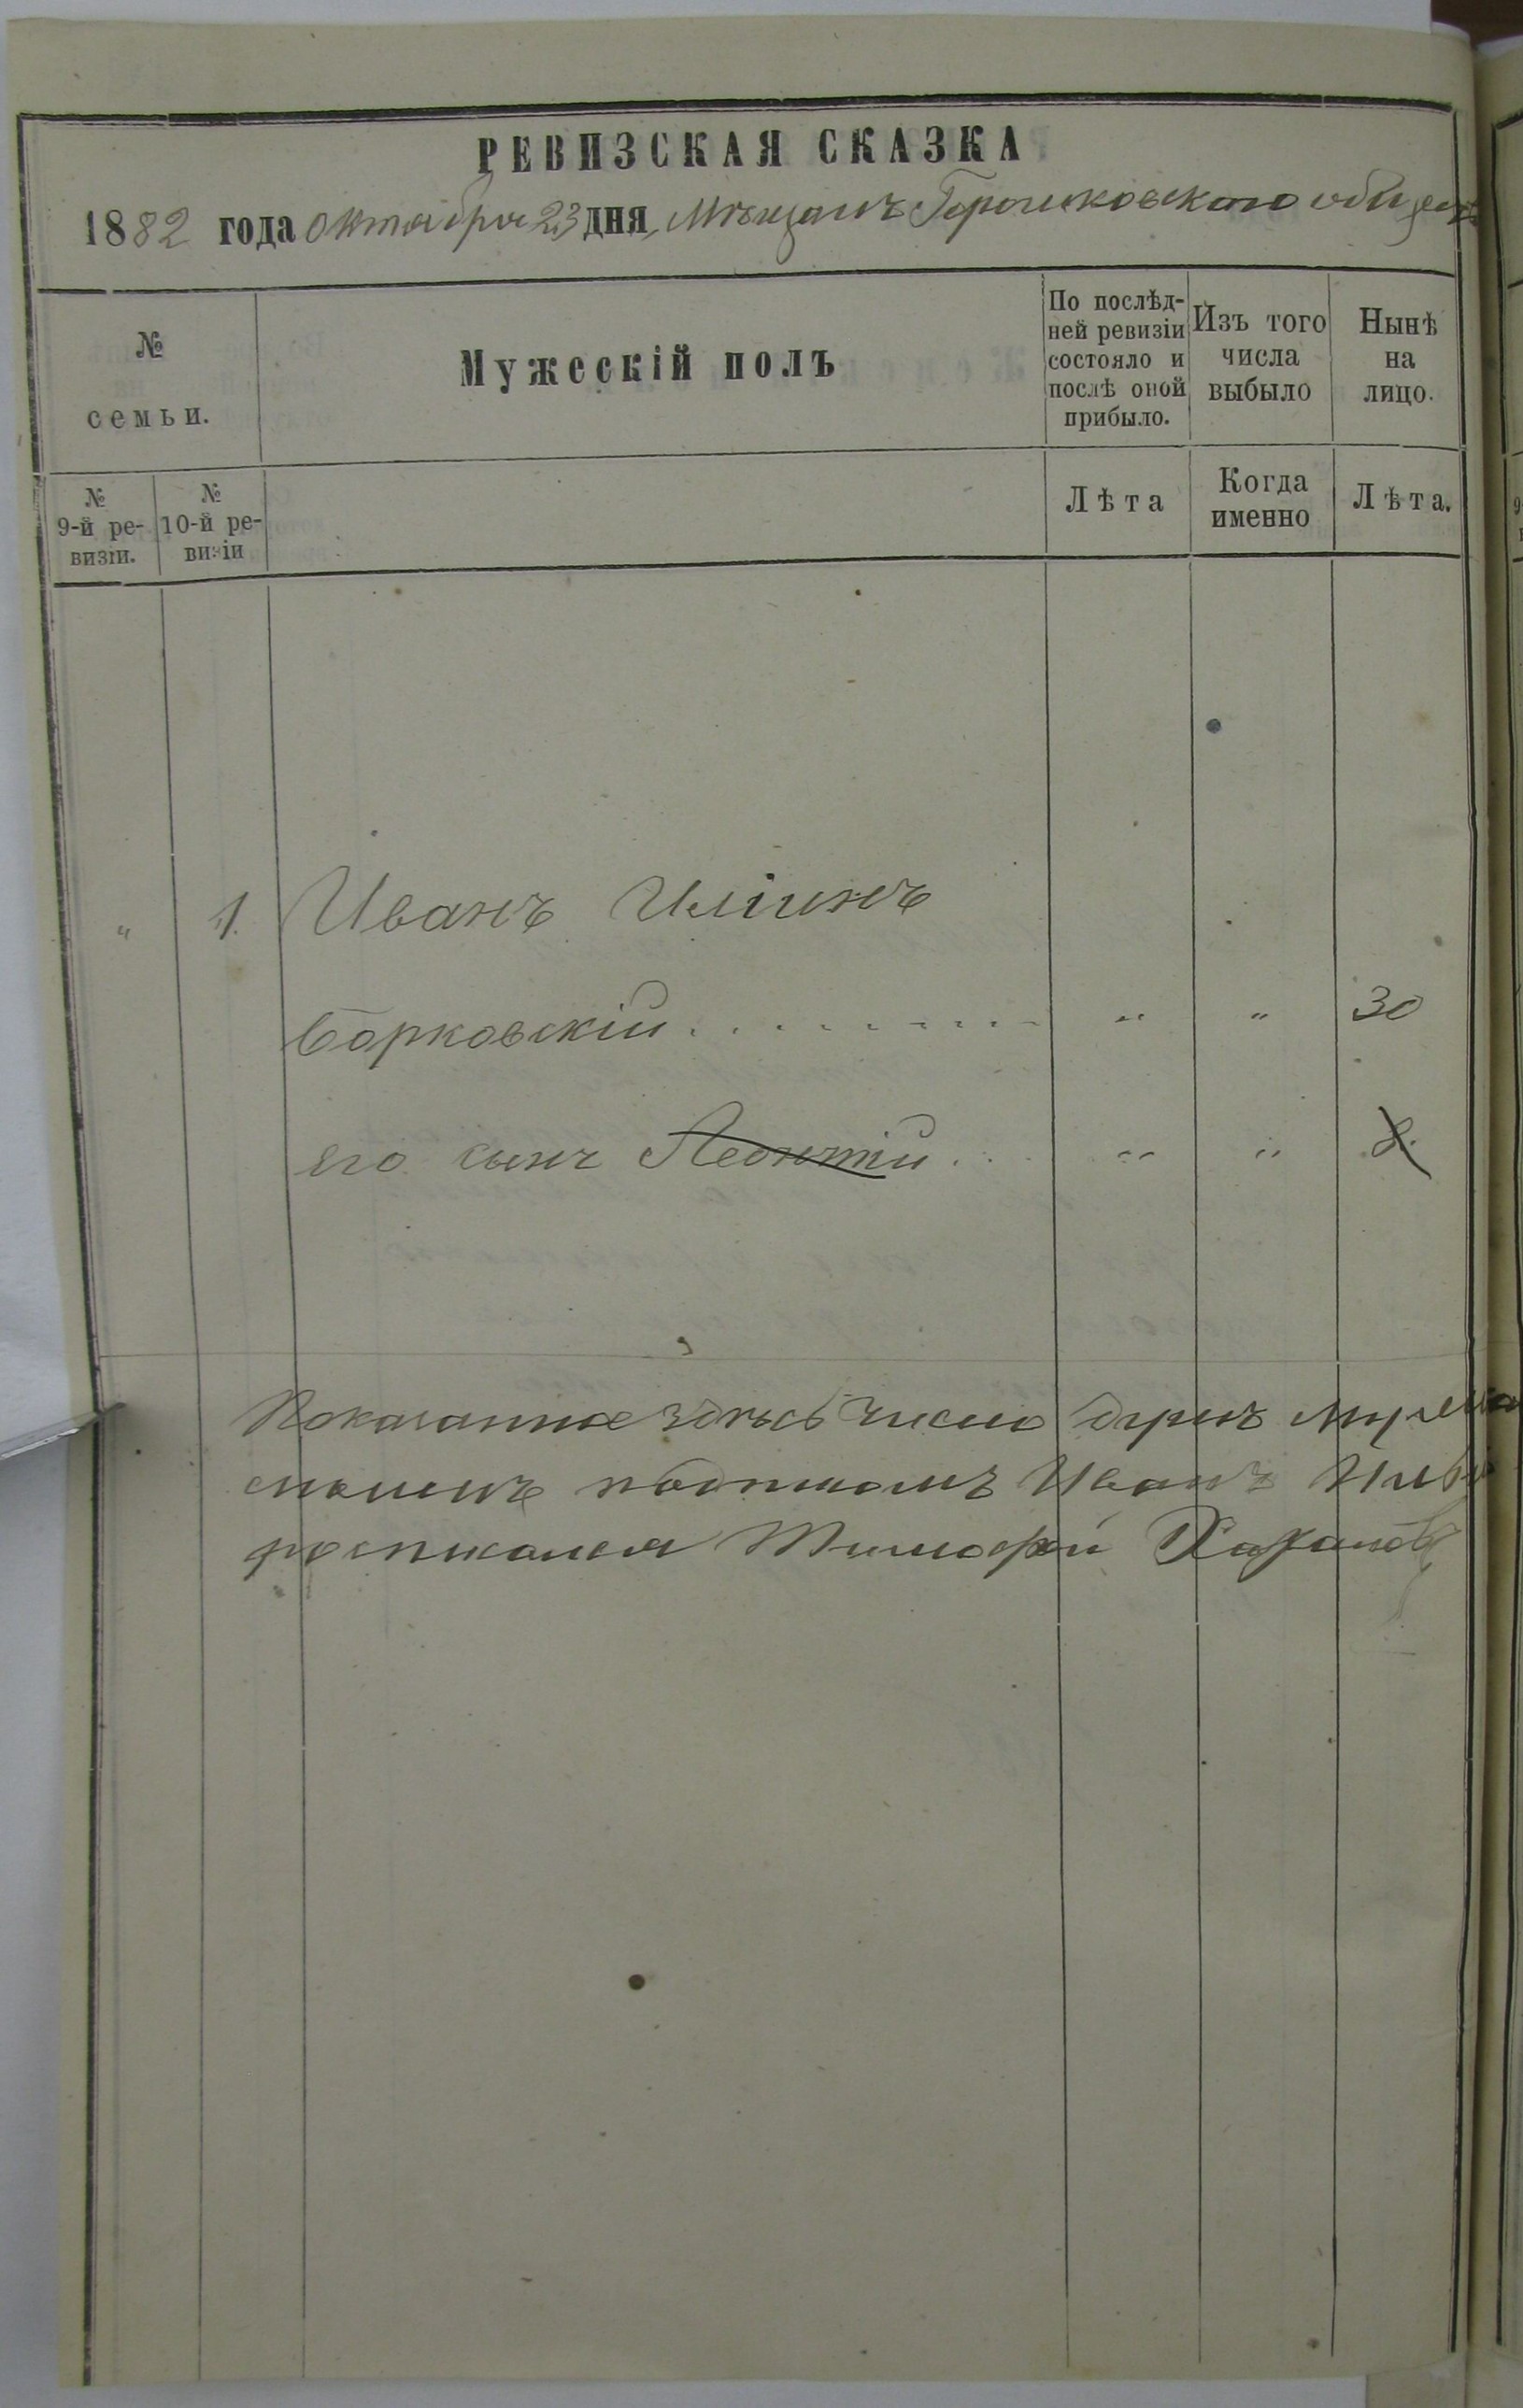 РЕВИЗСКАЯ СКАЗКА
1882 года октября 23 дня, Мѣщанъ Горошковскаго общест
№
семьи.
Мужескій полъ
По послѣд-
ней ревизіи
состояло и
послѣ оной
прибыло.
Изъ того
числа
выбыло
Нынѣ
на
лицо.
№
9-й ре-
визіи.
№
10-й ре-
визіи
Лѣта
Когда
именно
Лѣта.
" 1. Иванъ
Борковскій . . . . . . . . . . " " 30
его сынъ Леонтій . . . " " 8.
Показанное здѣсь число душъ
Иванъ
росписался Тимофей